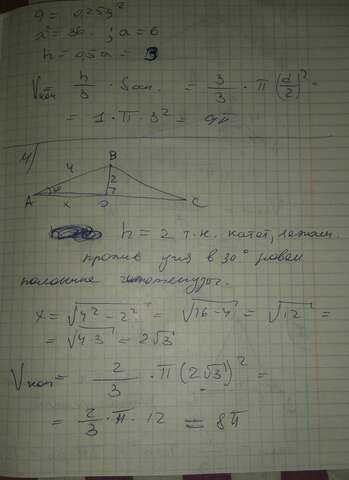 9 = 0,25a²
a² = 36 ; a = 6
h = 0,5a = 3
Vкон h/3 · Sосн. = 3/3 · π (d/2)² =
= 1 · π · 3² = 9π
4)
B
4
2
A
30°
x
C
h = 2 т.к. катет, лежащ.
против угла в 30° равен
половине гипотенузы.
x = √4² - 2² = √16 - 4 = √12 =
= √4·3 = 2√3
Vкон = 2/3 · π (2√3)² =
= 2/3 · π · 12 = 8π